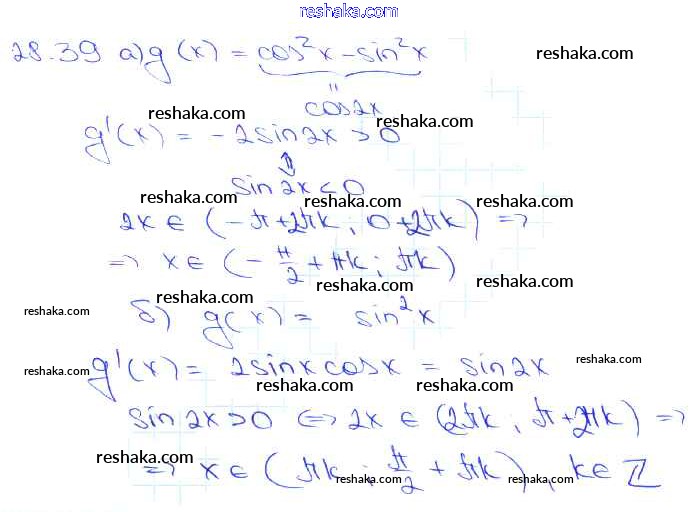 reshaka.com
28.39 а) g(x) = cos²x - sin²x
reshaka.com
"
cos2x
reshaka.com reshaka.com
g'(x) = -2sin2x > 0
reshaka.com
⇕
sin2x < 0
reshaka.com reshaka.com reshaka.com
2x ∈ (-π+2πk; 0+2πk) ⇒
⇒ x ∈ (-π/2 + πk; πk)
reshaka.com reshaka.com
reshaka.com
б) g(x) = sin²x
reshaka.com reshaka.com
g'(x) = 2sinxcosx = sin2x
reshaka.com reshaka.com
reshaka.com reshaka.com
sin2x>0 ⇔ 2x ∈ (2πk; π+2πk) ⇒
reshaka.com
⇒ x ∈ (πk; π/2 + πk), k∈Z
reshaka.com reshaka.com
reshaka.com